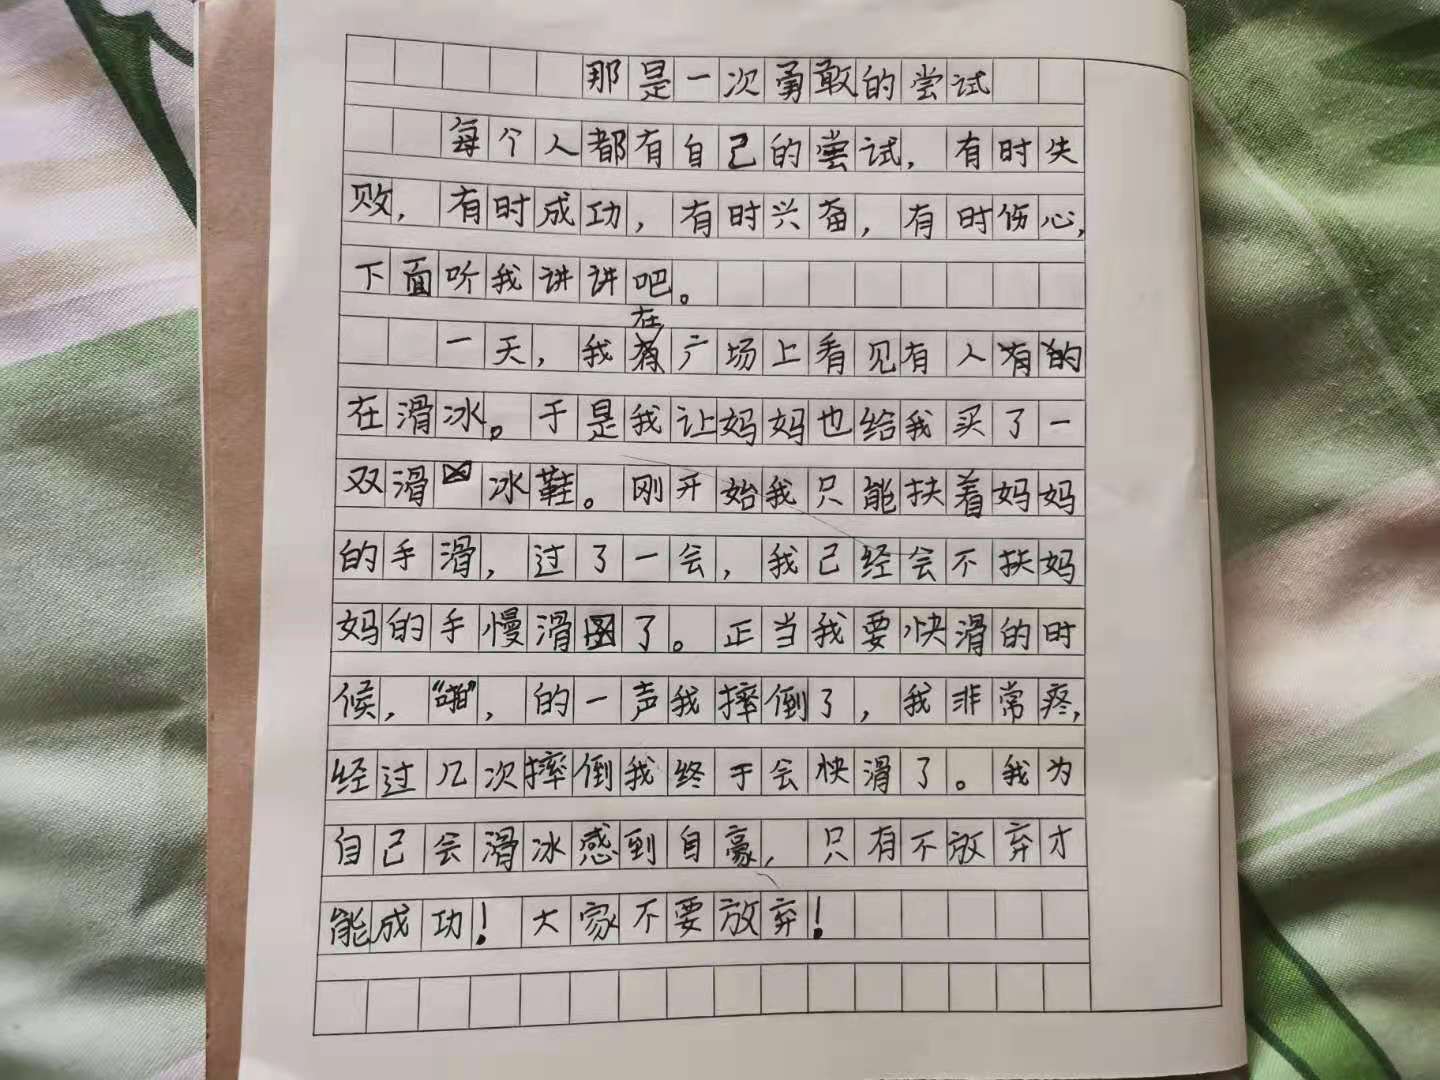 那是一次勇敢的尝试
每个人都有自己的尝试，有时失
败，有时成功，有时兴奋，有时伤心，
下面听我讲讲吧。
一天，我在广场上看见有人有的
在滑冰。于是我让妈妈也给我买了一
双滑冰鞋。刚开始我只能扶着妈妈
的手滑，过了一会，我已经会不扶妈
妈的手慢滑了。正当我要快滑的时
候，“啪”，的一声我摔倒了，我非常疼，
经过几次摔倒我终于会快滑了。我为
自己会滑冰感到自豪，只有不放弃才
能成功！大家不要放弃！